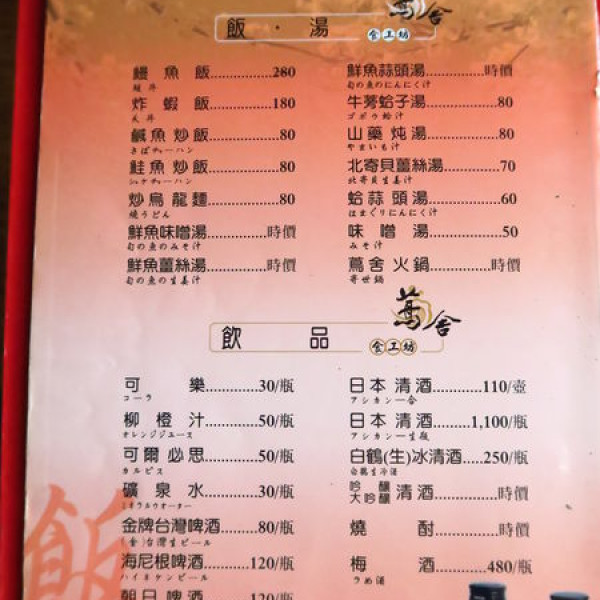 蔦舍
食工坊
飯．湯
鰻魚飯...............280
鰻丼
炸蝦飯...............180
天丼
鹹魚炒飯............80
さばチャーハン
鮭魚炒飯............80
シャケチャーハン
炒烏龍麵............80
燒うどん
鮮魚味噌湯............時價
旬の魚のみそ汁
鮮魚薑絲湯............時價
旬の魚の生姜汁
鮮魚蒜頭湯............時價
旬の魚のにんにく汁
牛蒡蛤子湯............80
ゴボウ蛤汁
山藥炖湯............80
やまいも汁
北寄貝薑絲湯............70
北寄貝生姜汁
蛤蒜頭湯............60
はまぐりにんにく汁
味噌湯...............50
みそ汁
蔦舍火鍋...............時價
寄世鍋
蔦舍
食工坊
飲品
可樂............30/瓶
コーラ
柳橙汁............50/瓶
オレンジジュース
可爾必思............50/瓶
カルピス
礦泉水............30/瓶
ミネラルウオーター
金牌台灣啤酒.........80/瓶
(金)台灣生ビール
海尼根啤酒.........120/瓶
ハイネケンビール
朝日啤酒............120/瓶
日本清酒............110/壺
アシカン一合
日本清酒.........1,100/瓶
アシカン一生瓶
白鶴(生)冰清酒.....250/瓶
白鶴生冷酒
吟釀
大吟釀清酒............時價
燒酎...............時價
梅酒............480/瓶
うめ酒
飯